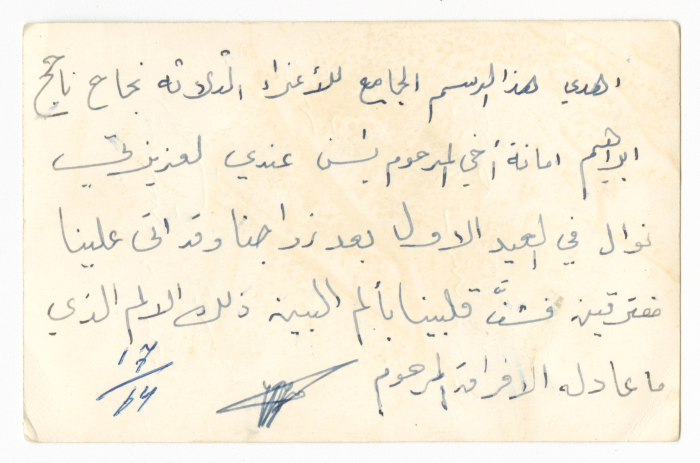 اهدي هذا الرسم الجامع للأعزاء الثلاثة نجاح ناجح
ابراهيم امانة أخي المرحوم عندي لعزيزتي
نوال في العيد الاول بعد زواجنا وقد اتى علينا
مفترقين قلبينا بألم البين ذلك الالم الذي
ما عادله الا فراق المرحوم
17/64